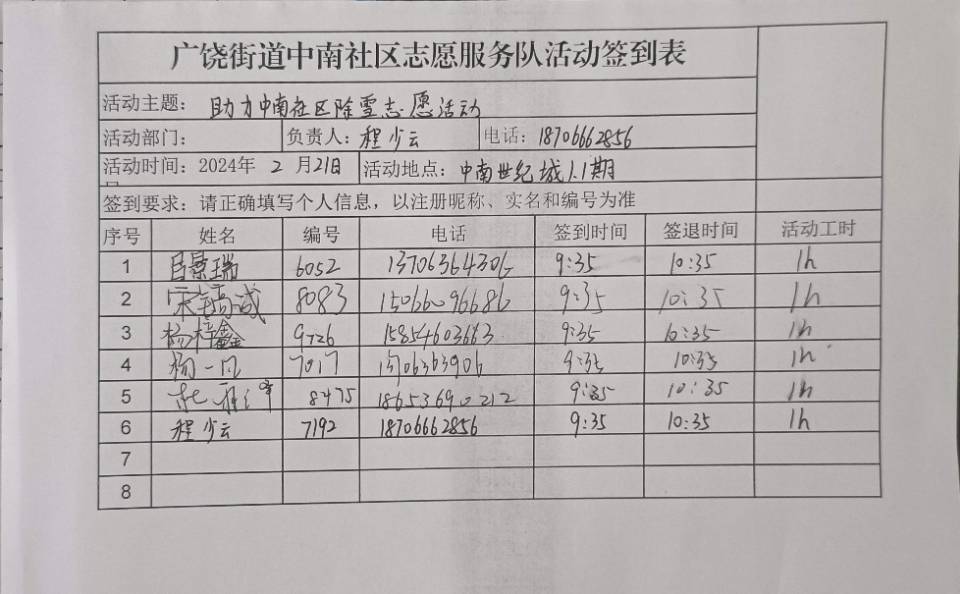 广饶街道中南社区志愿服务队活动签到表
活动主题： 助力中南社区除雪志愿活动
活动部门： 负责人：程少云 电话：18706662856
活动时间：2024年 2 月21日 活动地点：中南世纪城1.1期
签到要求：请正确填写个人信息，以注册昵称、实名和编号为准
序号 姓名 编号 电话 签到时间 签退时间 活动工时
1 吕景瑞 6052 13706364306 9:35 10:35 1h
2 宋 诚 8083 15066096686 9:35 10:35 1h
3 杨梓鑫 9726 15854603663 9:35 10:35 1h
4 杨一凡 7017 13706363906 9:35 10:35 1h
5 8475 18653690212 9:35 10:35 1h
6 程少云 7192 18706662856 9:35 10:35 1h
7
8